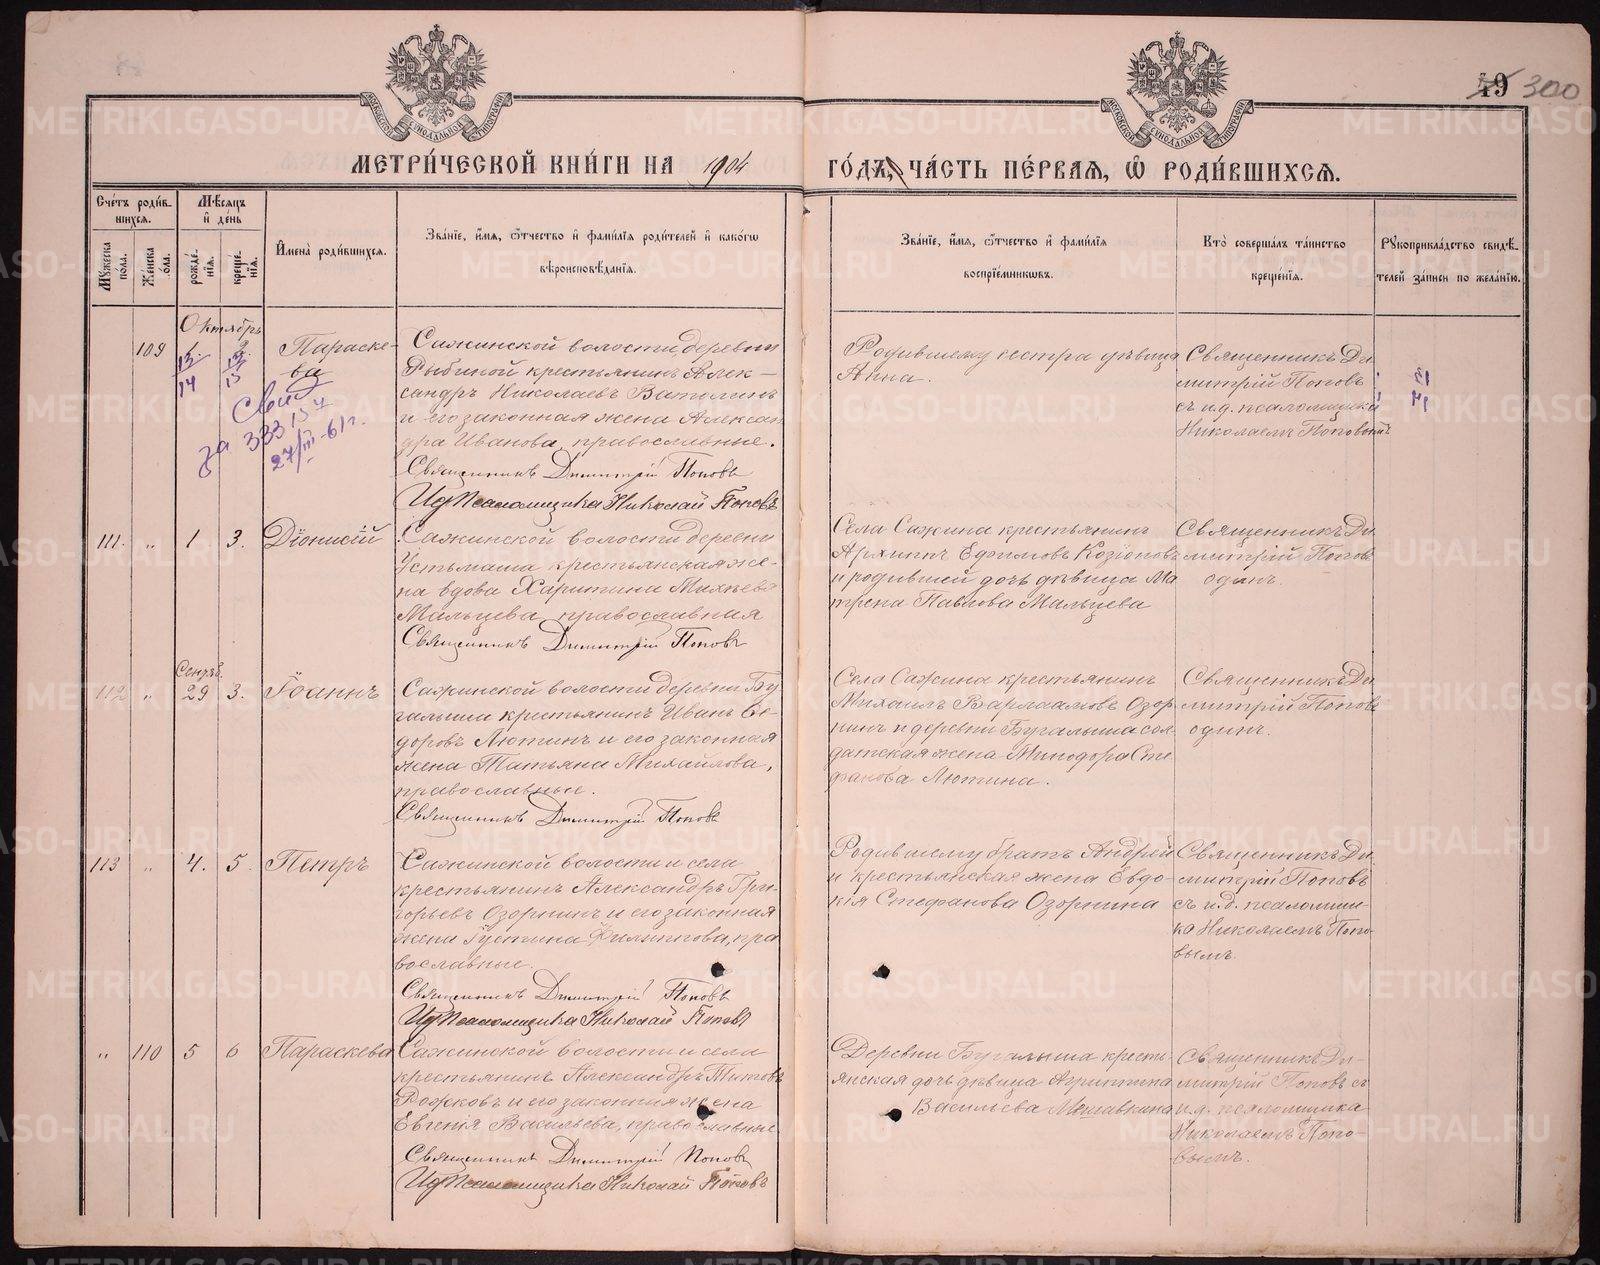 49 300
МОСКОВСКОЙ СИНОДАЛЬНОЙ ТИПОГРАФІИ
МОСКОВСКОЙ СИНОДАЛЬНОЙ ТИПОГРАФІИ
МЕТРИ́ЧЕСКОЙ КНИ́ГИ НА 1904 ГО́ДЪ, ЧА́СТЬ ПЕ́РВАЯ, Ѡ҆ РОДИ́ВШИХСЯ.
Сче́тъ роди́в-
шихся.
Му́жеска по́ла.
Же́нска по́ла.
Мѣ́сяцъ и҆ де́нь
рожде́-нїя.
креще́-нїя.
И҆мена̀ роди́вшихся.
Зва́нїе, и҆́мя, ѻ҆́тчество и҆ фами́лїя роди́телей и҆ како́гѡ
вѣроисповѣ́данїя.
Зва́нїе, и҆́мя, ѻ҆́тчество и҆ фами́лїя
воспрїе́мниковъ.
Кто̀ соверша́лъ та́инство
креще́нїя.
Рꙋкоприкла́дство свидѣ́-
телей за́писи по жела́нїю.
Октябрь
109
13. 13.
14 15
Параске-
ва
Свид
за 333134
27/III-61г.
Сажинской волости деревни
Рыбиной крестьянинъ Алек-
сандръ Николаевъ Ватолинъ
и его законная жена Алексан
дра Иванова, православные.
Священникъ Димитрій Поповъ
Ид Псаломщика Николай Поповъ
Родившему сестра дѣвица
Анна.
Священникъ Ди
митрій Поповъ
съ и.д. псаломщика
Николаемъ Поповымъ
111. „ 1 3. Діонисій
Сажинской волости деревни
Устьмаша крестьянская же-
на вдова Харитина Михѣева
Мальцева, православная
Священникъ Димитрій Поповъ
Села Сажина крестьянинъ
Архиппъ Ефимовъ Козіоновъ
и родившей дочь дѣвица Ма
трена Павлова Мальцева
Священникъ Ди
митрій Поповъ
одинъ.
Сентяб.
112 „ 29 3. Іоаннъ
Сажинской волости деревни Бу
галыша крестьянинъ Иванъ Ѳе-
доровъ Лютинъ и его законная
жена Татьяна Михайлова,
православные.
Священникъ Димитрій Поповъ
Села Сажина крестьянинъ
Михаилъ Варлаамовъ Озор
нинъ и деревни Бугалыша сол
датская жена Минодора Сте
фанова Лютина.
Священникъ Ди
митрій Поповъ
одинъ.
113 „ 4. 5. Петръ
Сажинской волости и села
крестьянинъ Александръ Гри-
горьевъ Озорнинъ и его законная
жена Іустина Филиппова, пра
вославные.
Священникъ Димитрій Поповъ
Ид Псаломщика Николай Поповъ
Родившему братъ Андрей
и крестьянская жена Евдо-
кія Стефанова Озорнина
Священникъ Ди
митрій Поповъ
съ и.д. псаломщи-
ка Николаемъ Попо-
вымъ.
„ 110 5 6 Параскева
Сажинской волости и села
крестьянинъ Александръ Титовъ
Рожковъ и его законная жена
Евгенія Васильева, православные
Священникъ Димитрій Поповъ
Ид Псаломщика Николай Поповъ
Деревни Бугалыша кресть-
янская дочь дѣвица Агриппина
Васильева
Священникъ Ди-
митрій Поповъ съ
и.д. псаломщика
Николаемъ Попо-
вымъ.
METRIKI.GASO-URAL.RU